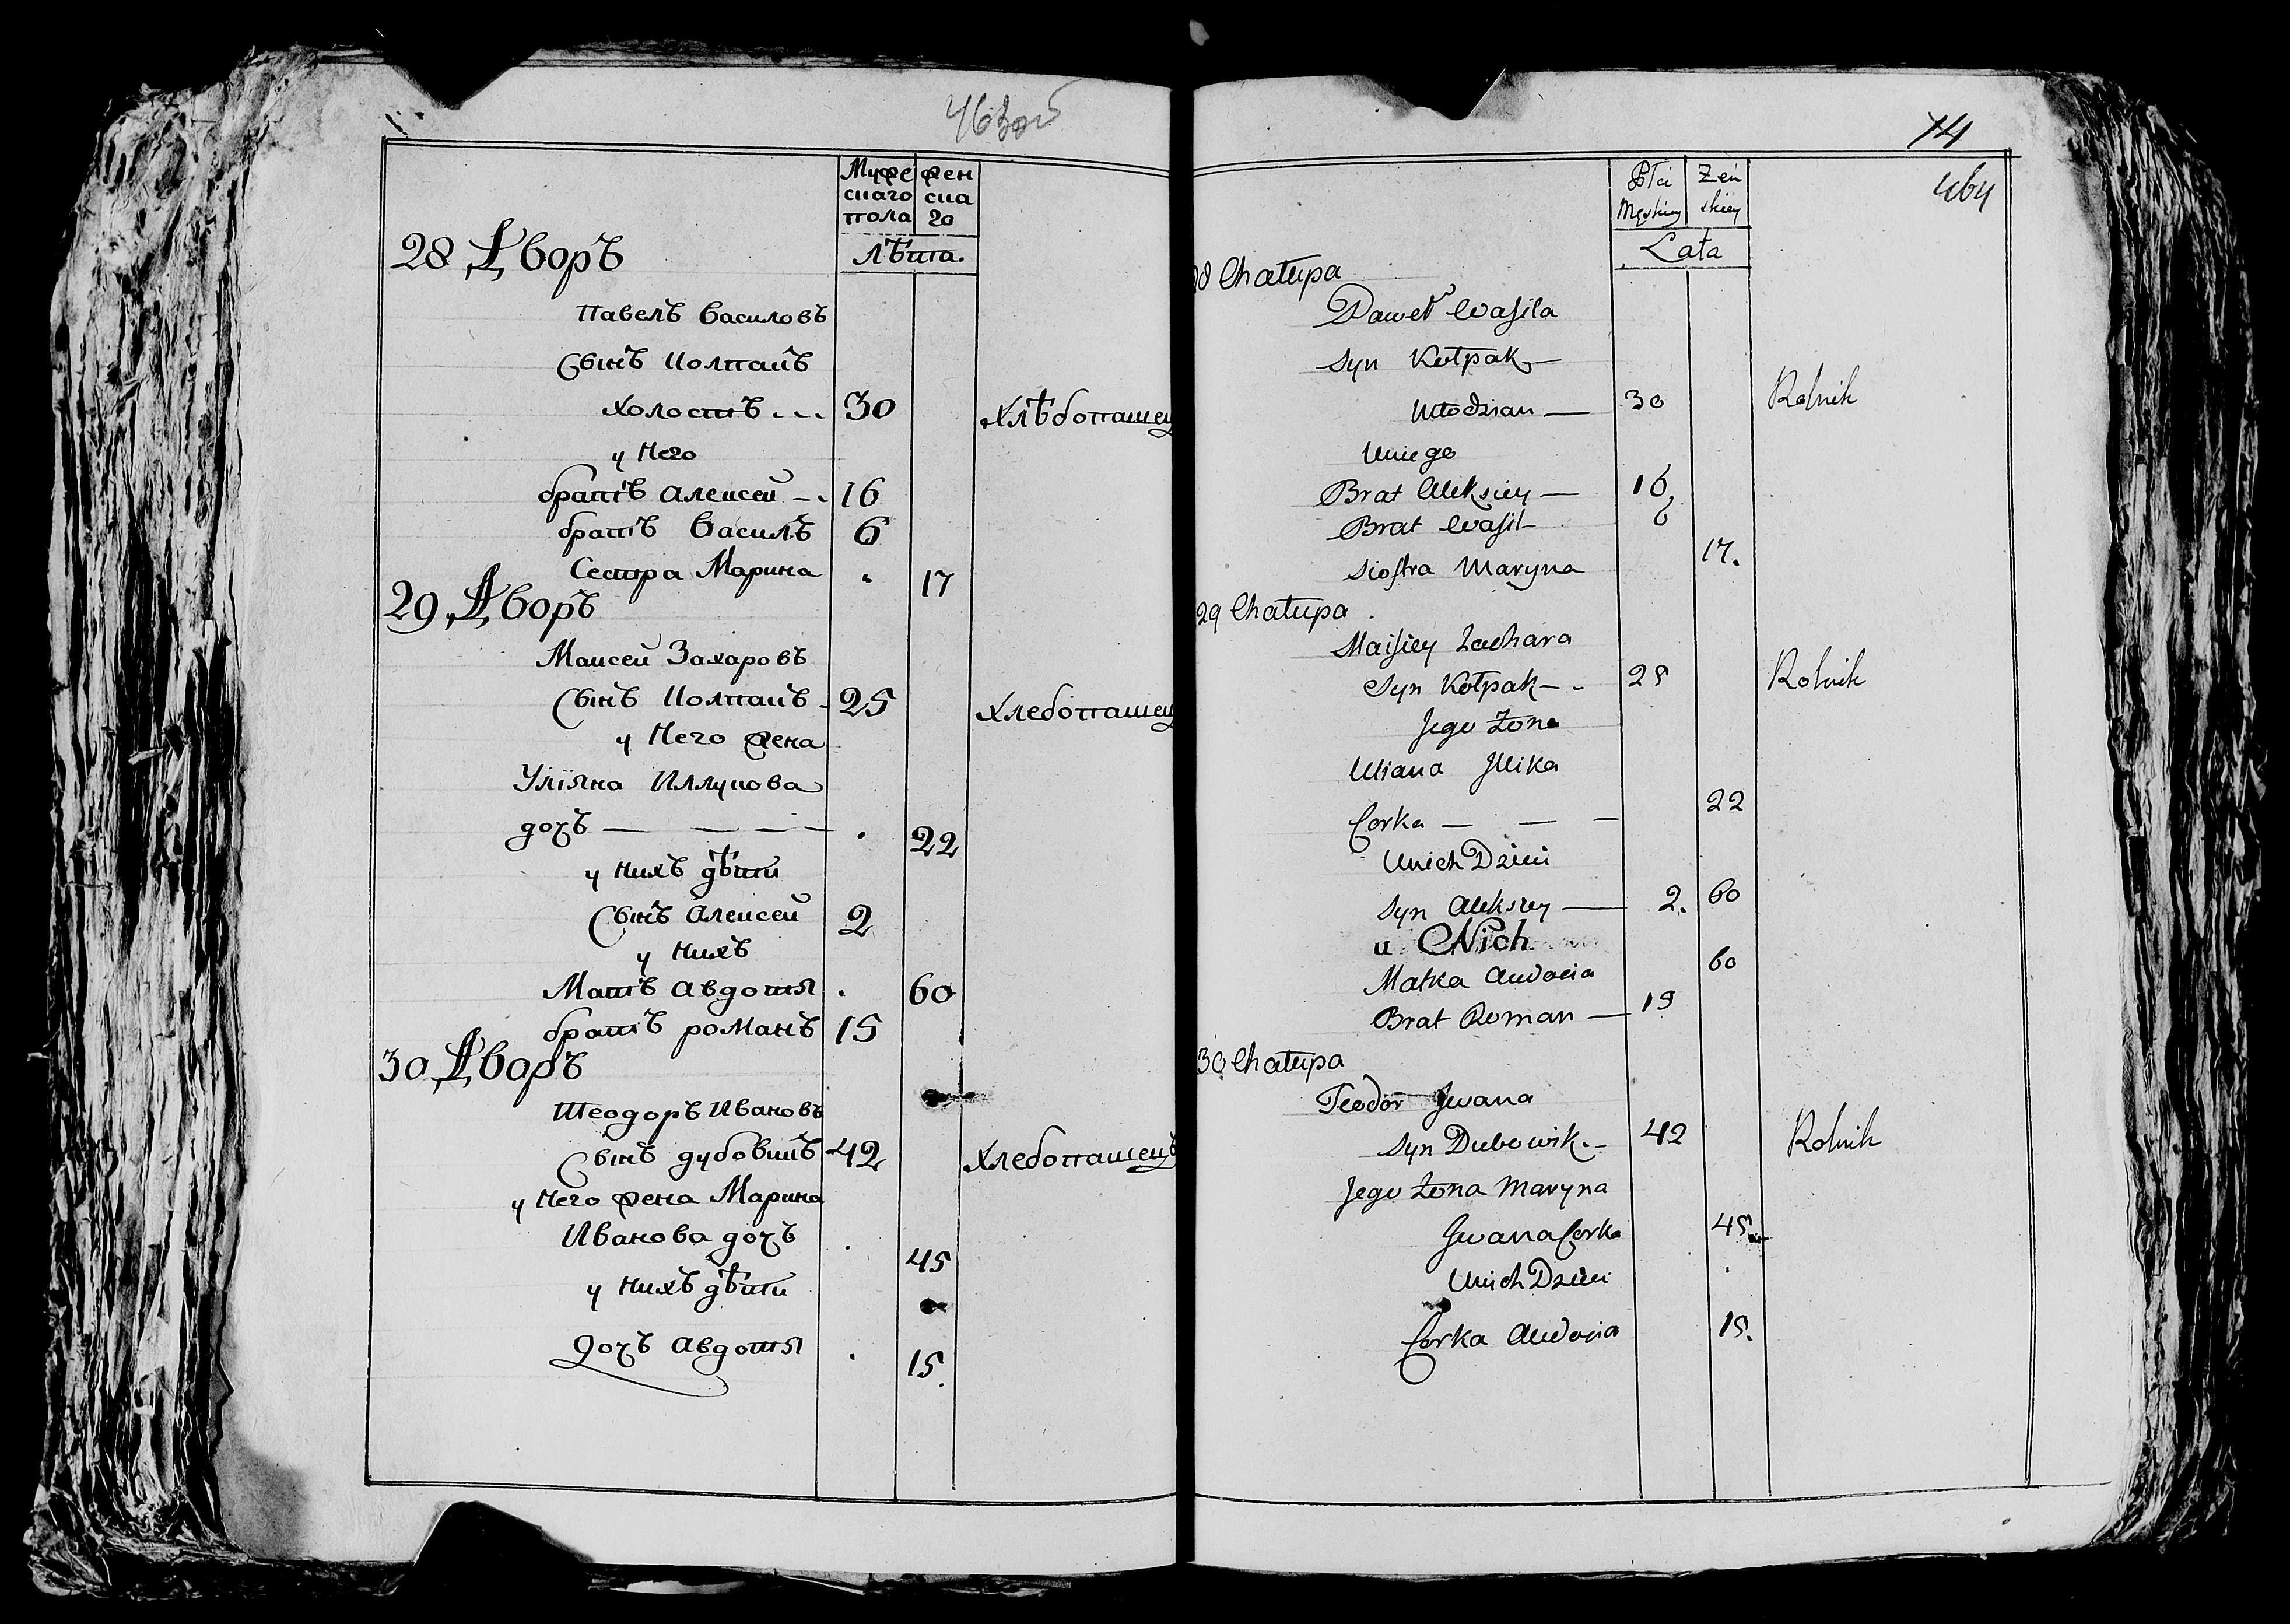 Мужескаго пола
женскаго
Лѣта.
28 Дворъ
Павелъ Василовъ
Сынъ Колпакъ
Холостъ 30 Хлѣбопашец
у Него
братъ Алексей 16
братъ Василъ 6
Сестра Марина 17
29 Дворъ
Маисей Захаровъ
Сынъ Колпакъ 25 Хлебопашец
у Него жена
Уліяна Иллукова
дочъ 22
у нихъ дѣти
Сынъ Алексей 2
у нихъ
Матъ Авдотя 60
братъ романъ 15
30 Дворъ
Теодоръ Ивановъ
Сынъ дубовикъ 42 Хлебопашецъ
у Него жена Марина
Иванова дочъ 45
у нихъ дѣти
Дочъ Авдотя 15.
74
464
Płci Męskiey
Zeń skiey
Lata
28 Chałupa
Paweł Wasila
Syn Kołpak
Młodzian — 30 Rolnik
Uniego
Brat Aleksiey — 16
Brat Wasil 6
Siostra Maryna 17.
29 Chałupa
Maisiey Zachara
Syn Kołpak 25 Rolnik
Jego Żona
Uliana Illika
Corka — — — 22
Unich Dzieci
Syn Aleksiey — 2. 60
u Nich
Matka Audocia 60
Brat Roman — 15
30 Chałupa
Teodor Jwana
Syn Dubowik 42 Rolnik
Jego Żona Maryna
Jwana Corka 45
Unich Dzieci
Corka Audocia 15.